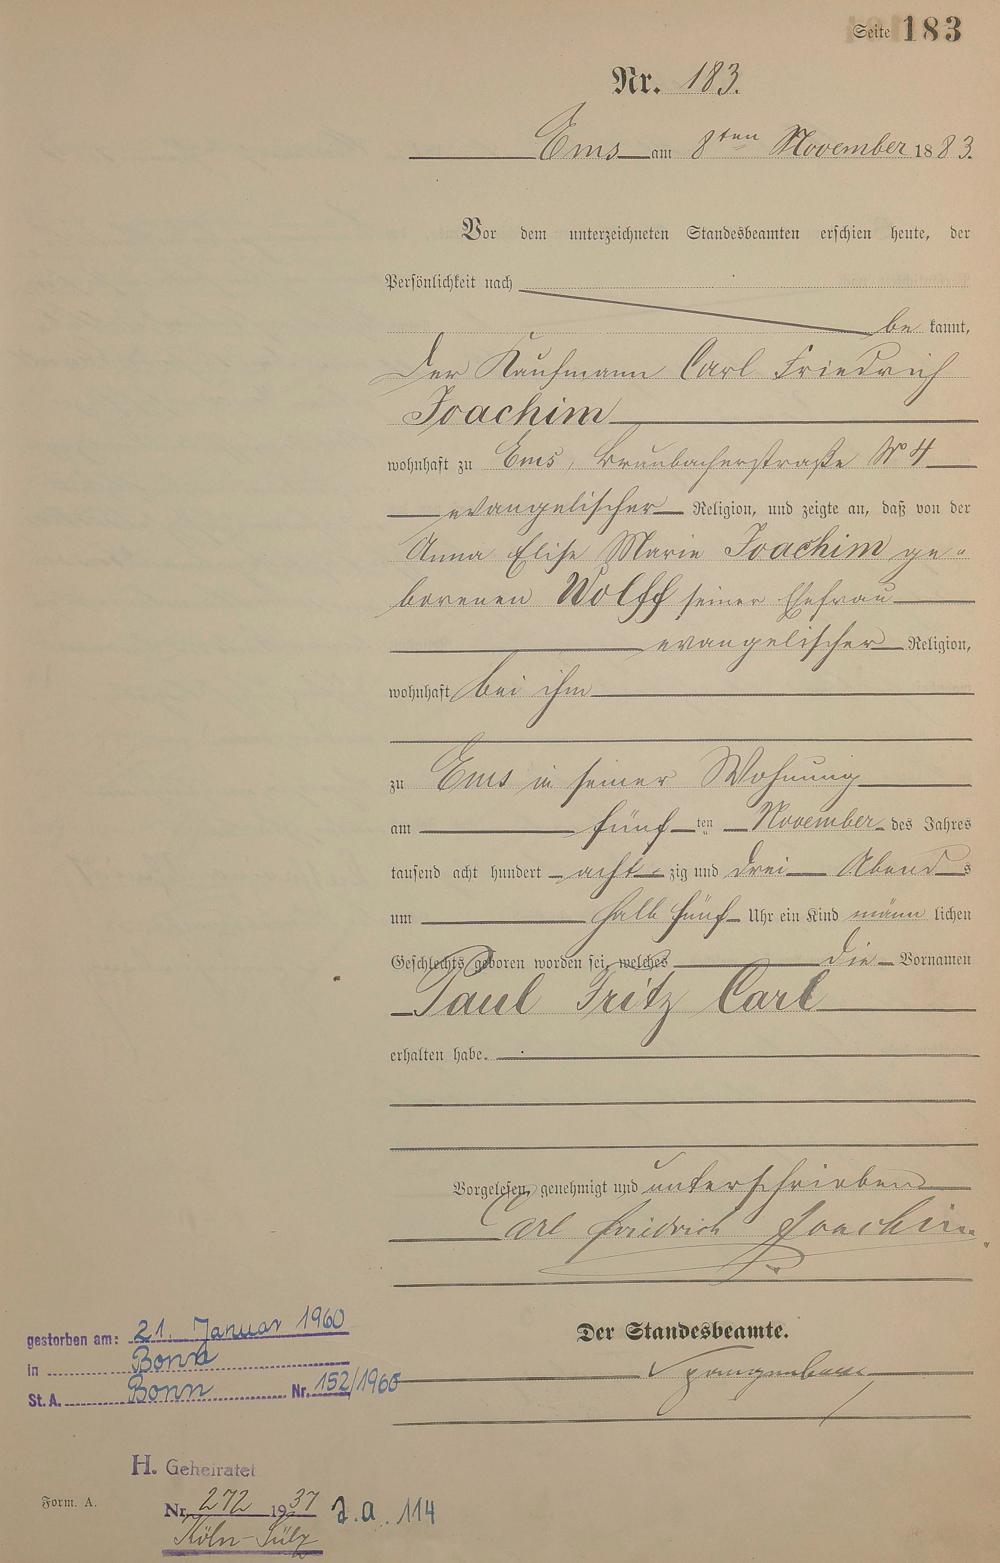 Seite 183
Nr. 183.
Ems am 8ten November 1883.
Vor dem unterzeichneten Standesbeamten erschien heute, der
Persönlichkeit nach
be kannt,
Der Kaufmann Carl Friedrich
Joachim
wohnhaft zu Ems, Braubacherstraße No 4
evangelischer Religion, und zeigte an, daß von der
Anna Elise Marie Joachim ge-
borenen Wolff seiner Ehefrau
evangelischer Religion,
wohnhaft bei ihm
zu Ems in seiner Wohnung
am fünf ten November des Jahres
tausend acht hundert acht zig und drei Abend s
um halb fünf Uhr ein Kind männ lichen
Geschlechts geboren worden sei, welches die Vornamen
Paul Fritz Carl
erhalten habe.
Vorgelesen, genehmigt und unterschrieben
Carl Friedrich Joachim
Der Standesbeamte.
gestorben am: 21. Januar 1960
in Bonn
St. A. Bonn Nr. 152/1960
H. Geheiratet
Nr. 272 1937 J.a. 114
Köln-Sülz
Form. A.